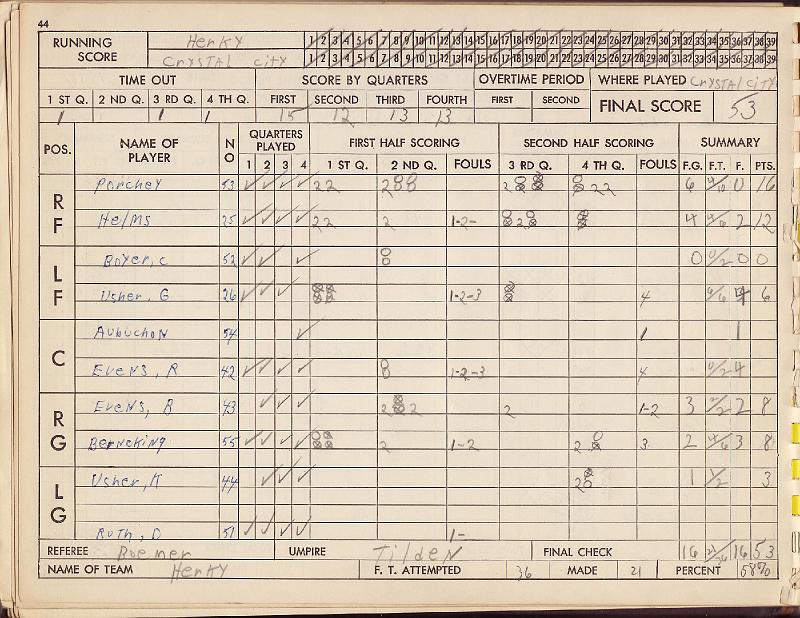 44
RUNNING SCORE Herky 1 2 3 4 5 6 7 8 9 10 11 12 13 14 15 16 17 18 19 20 21 22 23 24 25 26 27 28 29 30 31 32 33 34 35 36 37 38 39
Crystal City 1 2 3 4 5 6 7 8 9 10 11 12 13 14 15 16 17 18 19 20 21 22 23 24 25 26 27 28 29 30 31 32 33 34 35 36 37 38 39
TIME OUT SCORE BY QUARTERS OVERTIME PERIOD WHERE PLAYED Crystal City
1 ST Q. 2 ND Q. 3 RD Q. 4 TH Q. FIRST SECOND THIRD FOURTH FIRST SECOND FINAL SCORE 53
1 1 1 15 12 13 13
POS. NAME OF PLAYER NO QUARTERS PLAYED FIRST HALF SCORING SECOND HALF SCORING SUMMARY
1 2 3 4 1 ST Q. 2 ND Q. FOULS 3 RD Q. 4 TH Q. FOULS F.G. F.T. F. PTS.
RF Porchey 53 ✓ ✓ ✓ ✓ 22 2 2 22 6 0 16
Helms 25 ✓ ✓ ✓ ✓ 22 2 1-2- 2 4 2 12
LF Boyer, C 52 ✓ ✓ ✓ 0 0/2 0 0
Usher, G 26 ✓ ✓ ✓ 1-2-3 4 6/6 4 6
C Aubuchon 54 ✓ 1 1
Evens, R 42 ✓ ✓ ✓ ✓ 1-2-3 4 0/2 4
RG Evens, B 43 ✓ ✓ ✓ 2 2 2 1-2 3 2/2 2 8
Berneking 55 ✓ ✓ ✓ ✓ 2 1-2 2 3 2 4/6 3 8
LG Usher, K 44 ✓ ✓ ✓ 2 1 1/2 3
Ruth, D 51 ✓ ✓ ✓ ✓ 1-
REFEREE Boemer UMPIRE Tilden FINAL CHECK 16 16 53
NAME OF TEAM Herky F. T. ATTEMPTED 36 MADE 21 PERCENT 58%